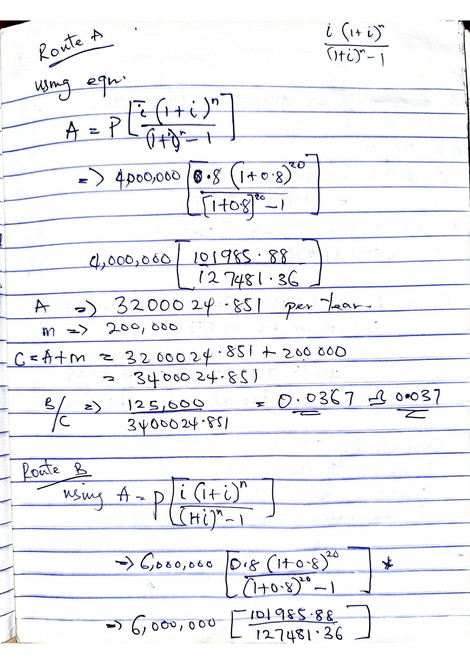 Route A
i (1+i)ⁿ
(1+i)ⁿ-1
using eqn.
A = P [ i (1+i)ⁿ / (1+i)ⁿ - 1 ]
=> 4,000,000 [ 0.8 (1+0.8)²⁰ / [1+0.8]²⁰ - 1 ]
4,000,000 [ 101985.88 / 127481.36 ]
A => 3200024.851 per year
m => 200,000
C = A+m = 3200024.851 + 200000
= 3400024.851
B/C => 125,000 / 3400024.851 = 0.0367 0.037
Route B
using A = P [ i (1+i)ⁿ / (1+i)ⁿ - 1 ]
-> 6,000,000 [ 0.8 (1+0.8)²⁰ / (1+0.8)²⁰ - 1 ] *
-> 6,000,000 [ 101985.88 / 127481.36 ]